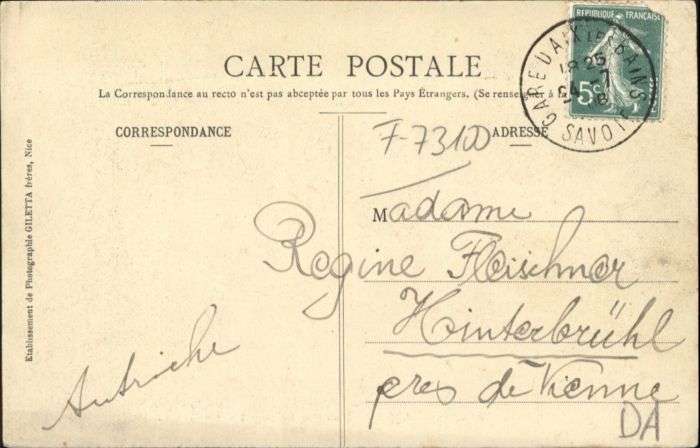 RÉPUBLIQUE FRANÇAISE
5c
GARE D'AIX-LES-BAINS
18 25
SAVOIE
CARTE POSTALE
La Correspondance au recto n'est pas acceptée par tous les Pays Étrangers. (Se renseigner à
CORRESPONDANCE
ADRESSE
F-73100
Madame
Regine Fleischner
Hinterbrühl
près de Vienne
Autriche
DA
Etablissement de Photographie GILETTA frères, Nice